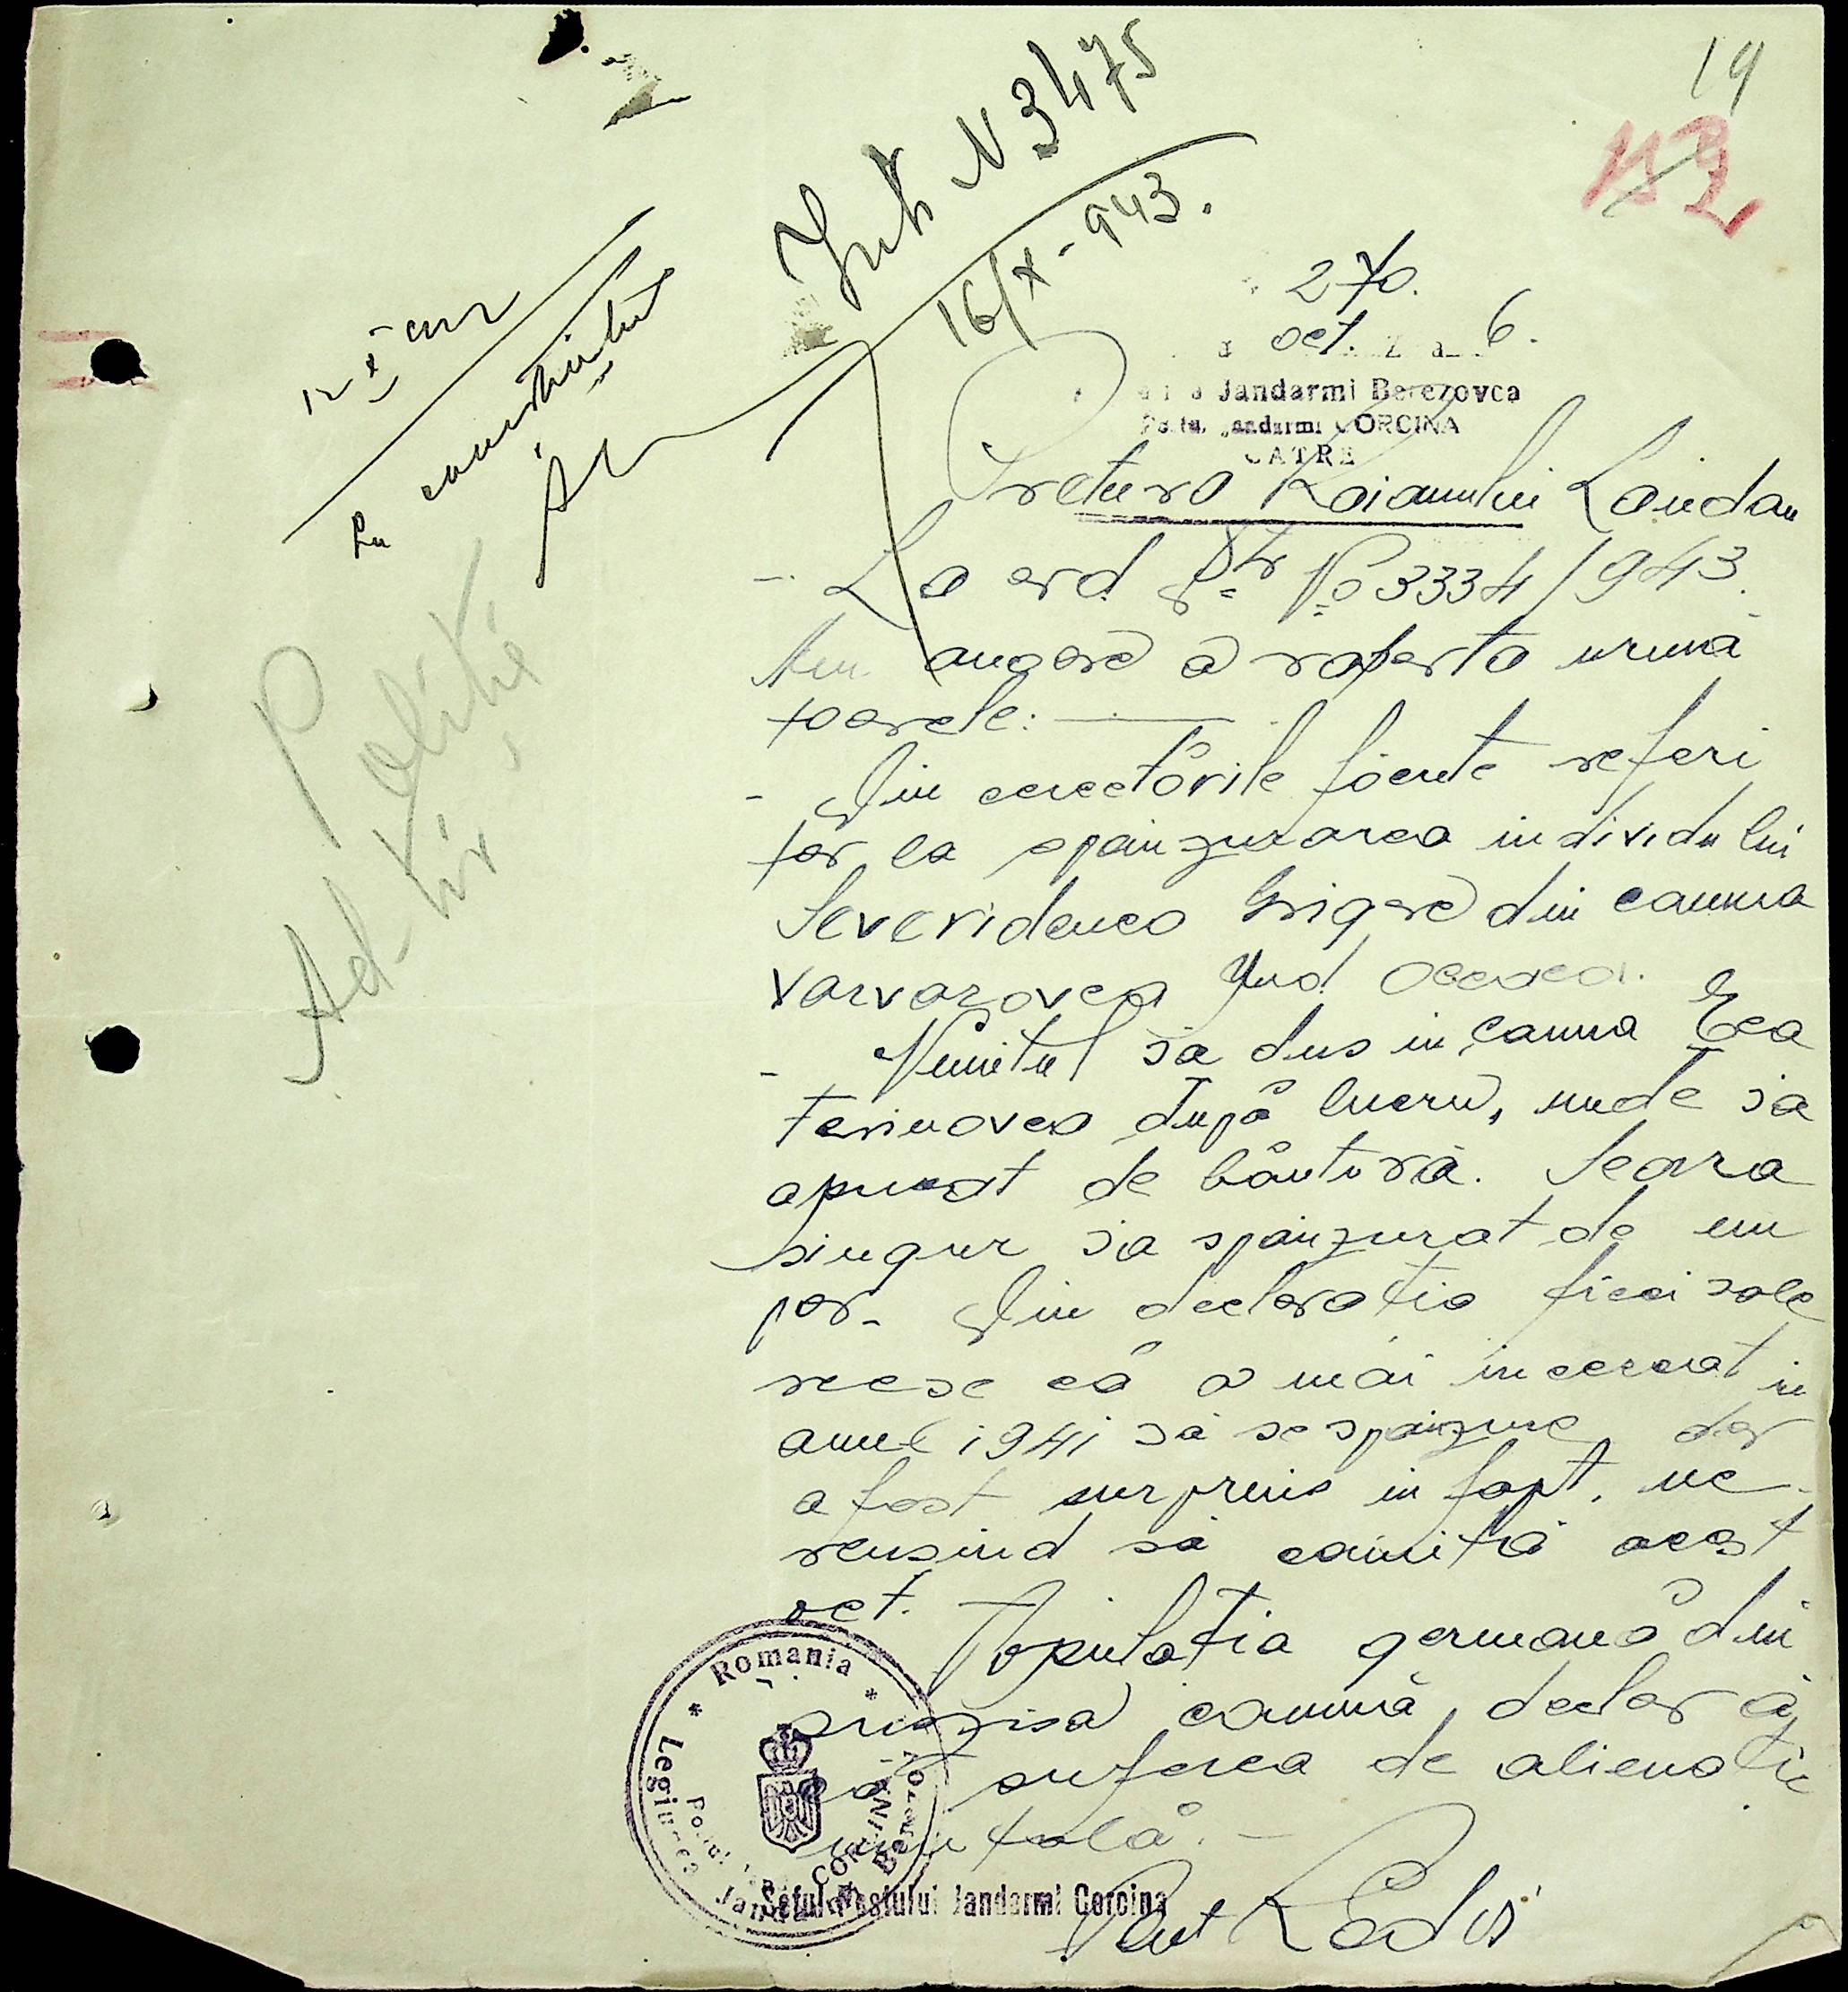 19
N 3475
16/X-943.
270.
oct. 6.
Jandarmi Berezovca
Jandarmi CORCINA
CATRE
Pretura Raionului Landau
- La ord Dtr No 3334/943.
Am onoare a raporta urmă
toarele:
- Din cercetările făcute referi
tor la spânzurarea individului
Severidenco Grigore din comuna
Varvarovca Jud Oceacov.
- Numitul sa dus in comuna Eca
terinovca după lucru, unde sa
apucat de băutură. Seara
singur sa spânzurat de un
par. Din declaratia ficei sale
reese că a mai incercat in
anul 1941 să se spânzure dar
a fost surprins in fapt, ne
reusind să comită acest
act. Populatia germană din
suszisa comună, declară
că suferea de alienatie
mintală.-
* Romania *
Legiunea Jandarmi Berezovca
Postul Jand. CORCINA
Seful Postului Jandarmi Corcina
12 X
La
Politie
Ad-tiv